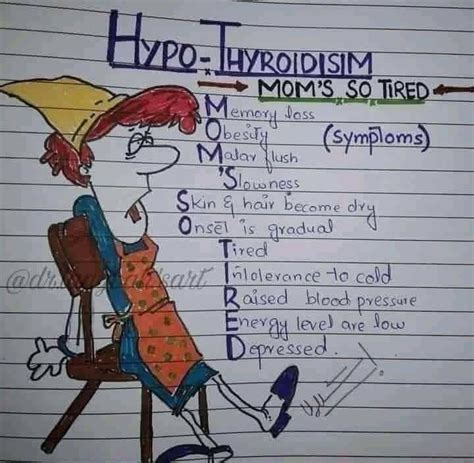 HYPO-THYROIDISIM
MOM'S SO TIRED
Memory loss
Obesity (Symploms)
Malar flush
'Slowness
Skin & hair become dry
Onset is gradual
Tired
Intolerance to cold
Raised blood pressure
Energy level are low
Depressed.